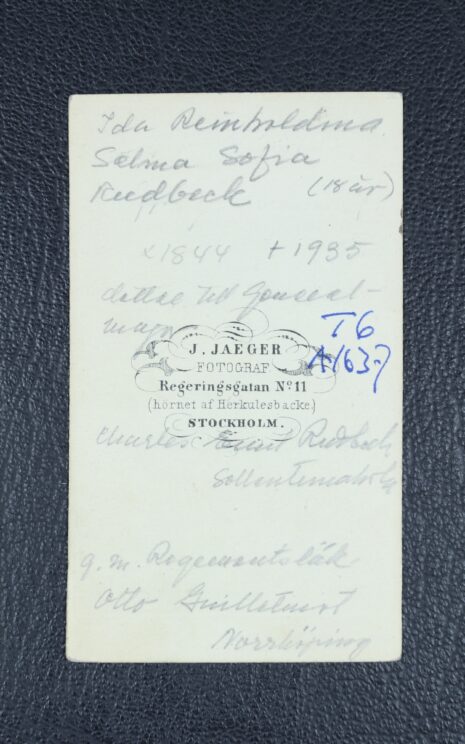 Ida Reinholdina
Selma Sofia
Rudbeck (18 år)
*1844 +1935
dotter till General-
major
T6
A/637
J. JAEGER
FOTOGRAF
Regeringsgatan Nº 11
(hörnet af Herkulesbacke.)
STOCKHOLM.
Charles Rudbeck
Sollentunaholm
g. m. Regementsläk.
Otto
Norrköping